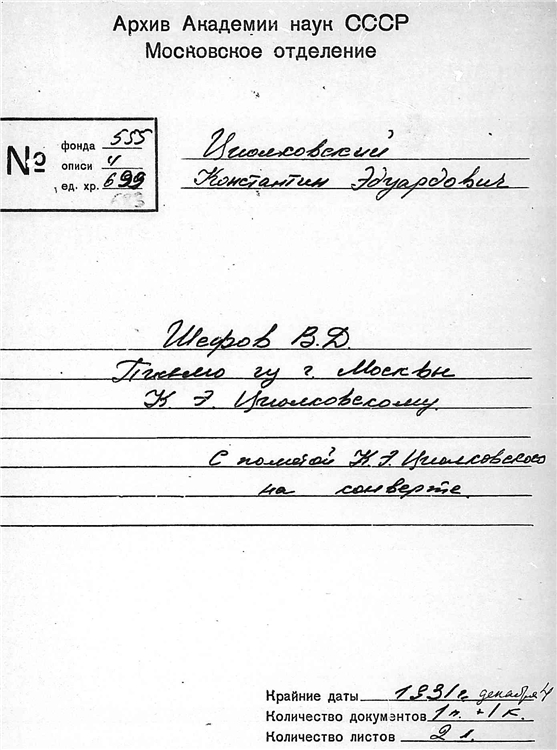 Архив Академии наук СССР
Московское отделение
№
фонда 555
описи 4
ед. хр. 699
683
Циолковский
Константин Эдуардович
Шефров В.Д.
Письмо из г. Москвы
К. Э. Циолковскому.
С пометой К.Э. Циолковского
на конверте.
Крайние даты 1931 г. декабря 4
Количество документов 1 п. + 1 к.
Количество листов 2 л.